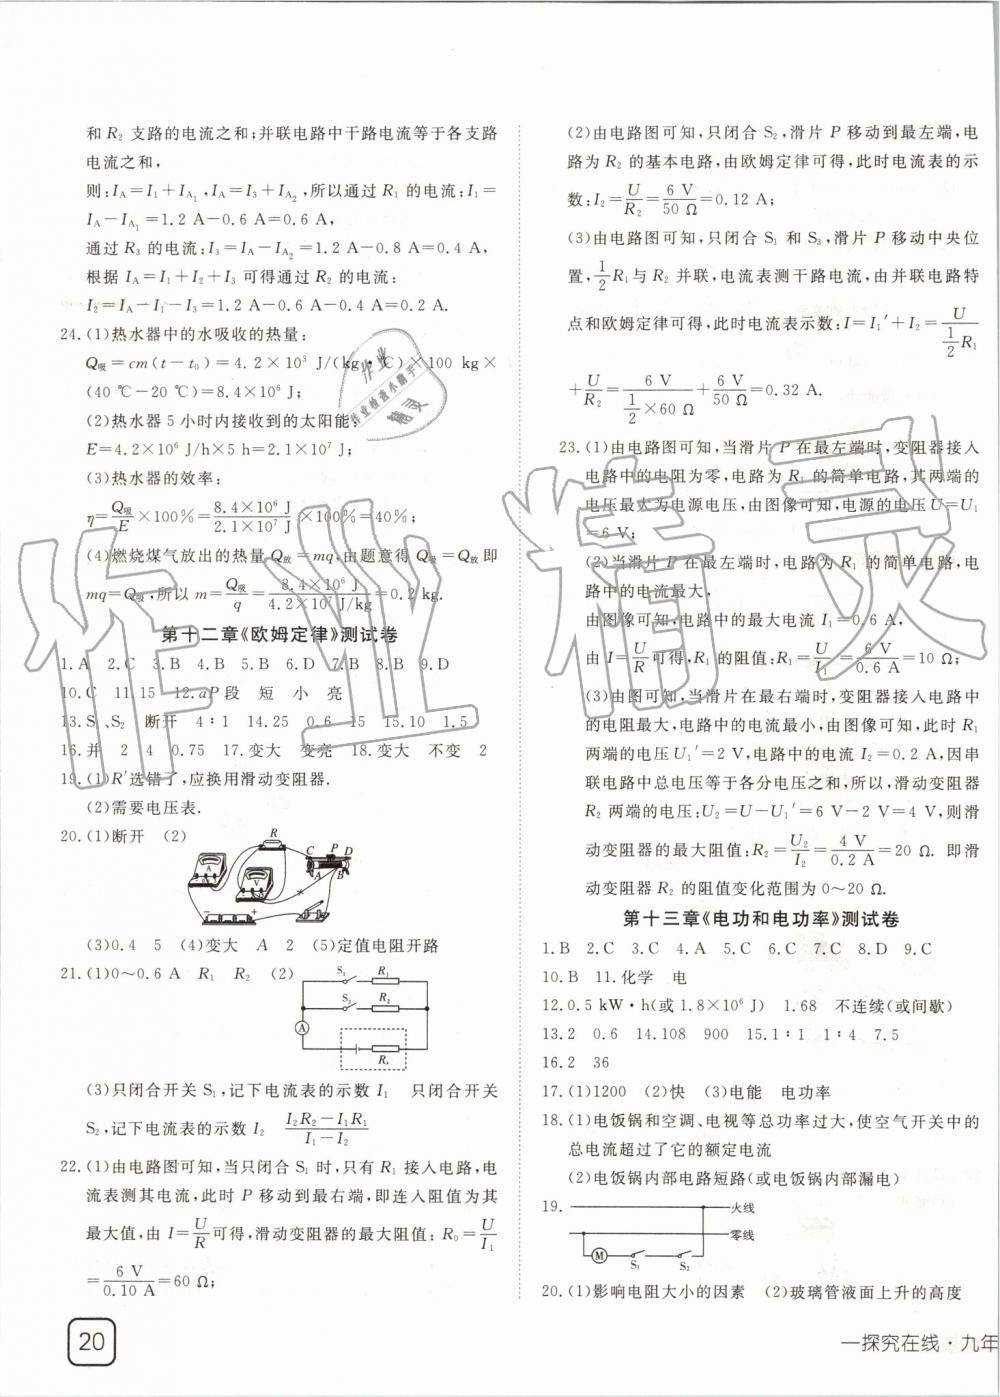 和 R₂ 支路的电流之和;并联电路中干路电流等于各支路
电流之和,
则:I_A=I₁+I_A₁,I_A=I₃+I_A₂,所以通过 R₁ 的电流:I₁=
I_A-I_A₁=1.2 A-0.6 A=0.6 A,
通过 R₃ 的电流:I₃=I_A-I_A₂=1.2 A-0.8 A=0.4 A,
根据 I_A=I₁+I₂+I₃ 可得通过 R₂ 的电流:
I₂=I_A-I₁-I₃=1.2 A-0.6 A-0.4 A=0.2 A.
24.(1)热水器中的水吸收的热量:
Q吸=cm(t-t₀)=4.2×10³ J/(kg·℃)×100 kg×
(40 ℃-20 ℃)=8.4×10⁶ J;
(2)热水器 5 小时内接收到的太阳能:
E=4.2×10⁶ J/h×5 h=2.1×10⁷ J;
(3)热水器的效率:
η=Q吸/E×100%=8.4×10⁶ J/2.1×10⁷ J×100%=40%;
(4)燃烧煤气放出的热量 Q放=mq,由题意得 Q吸=Q放 即
mq=Q吸,所以 m=Q吸/q=8.4×10⁶ J/4.2×10⁷ J/kg=0.2 kg.
第十二章《欧姆定律》测试卷
1.A 2.C 3.B 4.B 5.B 6.D 7.B 8.B 9.D
10.C 11.15 12.aP段 短 小 亮
13.S₁、S₂ 断开 4∶1 14.25 0.6 15 15.10 1.5
16.并 2 4 0.75 17.变大 变亮 18.变大 不变 2
19.(1)R′选错了,应换用滑动变阻器.
(2)需要电压表.
20.(1)断开 (2)
R
C P D
A B
A
V
- +
(3)0.4 5 (4)变大 A 2 (5)定值电阻开路
21.(1)0~0.6 A R₁ R₂ (2)
S₁ R₁
S₂ R₂
A
Rₓ
(3)只闭合开关 S₁,记下电流表的示数 I₁ 只闭合开关
S₂,记下电流表的示数 I₂ (I₂R₂-I₁R₁)/(I₁-I₂)
22.(1)由电路图可知,当只闭合 S₁ 时,只有 R₁ 接入电路,电
流表测其电流,此时 P 移动到最右端,即连入阻值为其
最大值,由 I=U/R可得,滑动变阻器的最大阻值:R₀=U/I₁
=6 V/0.10 A=60 Ω;
(2)由电路图可知,只闭合 S₂,滑片 P 移动到最左端,电
路为 R₂ 的基本电路,由欧姆定律可得,此时电流表的示
数:I₂=U/R₂=6 V/50 Ω=0.12 A;
(3)由电路图可知,只闭合 S₁ 和 S₃,滑片 P 移动中央位
置,1/2R₁与 R₂ 并联,电流表测干路电流,由并联电路特
点和欧姆定律可得,此时电流表示数:I=I₁′+I₂=U/(1/2R₁)
+U/R₂=6 V/(1/2×60 Ω)+6 V/50 Ω=0.32 A.
23.(1)由电路图可知,当滑片 P在最左端时,变阻器接入
电路中的电阻为零,电路为 R₁ 的简单电路,其两端的
电压最大为电源电压,由图像可知,电源的电压U=U₁
=6 V;
(2)当滑片 P 在最左端时,电路为 R₁ 的简单电路,电
路中的电流最大,
由图像可知,电路中的最大电流I₁=0.6 A,
由 I=U/R可得,R₁ 的阻值:R₁=U/I₁=6 V/0.6 A=10 Ω;
(3)由图可知,当滑片在最右端时,变阻器接入电路中
的电阻最大,电路中的电流最小,由图像可知,此时 R₁
两端的电压 U₁′=2 V,电路中的电流 I=0.2 A,因串
联电路中总电压等于各分电压之和,所以,滑动变阻器
R₂ 两端的电压:U₂=U-U₁′=6 V-2 V=4 V,则滑
动变阻器的最大阻值:R₂=U₂/I₂=4 V/0.2 A=20 Ω. 即滑
动变阻器 R₂ 的阻值变化范围为 0~20 Ω.
第十三章《电功和电功率》测试卷
1.B 2.C 3.C 4.A 5.C 6.C 7.C 8.D 9.C
10.B 11.化学 电
12.0.5 kW·h(或 1.8×10⁶ J) 1.68 不连续(或间歇)
13.2 0.6 14.108 900 15.1∶1 1∶4 7.5
16.2 36
17.(1)1200 (2)快 (3)电能 电功率
18.(1)电饭锅和空调、电视等总功率过大,使空气开关中的
总电流超过了它的额定电流
(2)电饭锅内部电路短路(或电饭锅内部漏电)
19.
火线
零线
M S₁ S₂
20.(1)影响电阻大小的因素 (2)玻璃管液面上升的高度
20
一探究在线·九年
作业精灵
作业
作业检查小助手
精灵